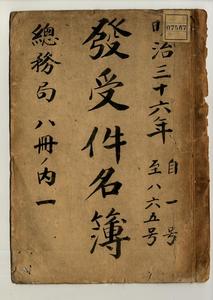 明治三十六年 自一号
至八六五号
發受件名簿
總務局 八冊ノ内一
07567